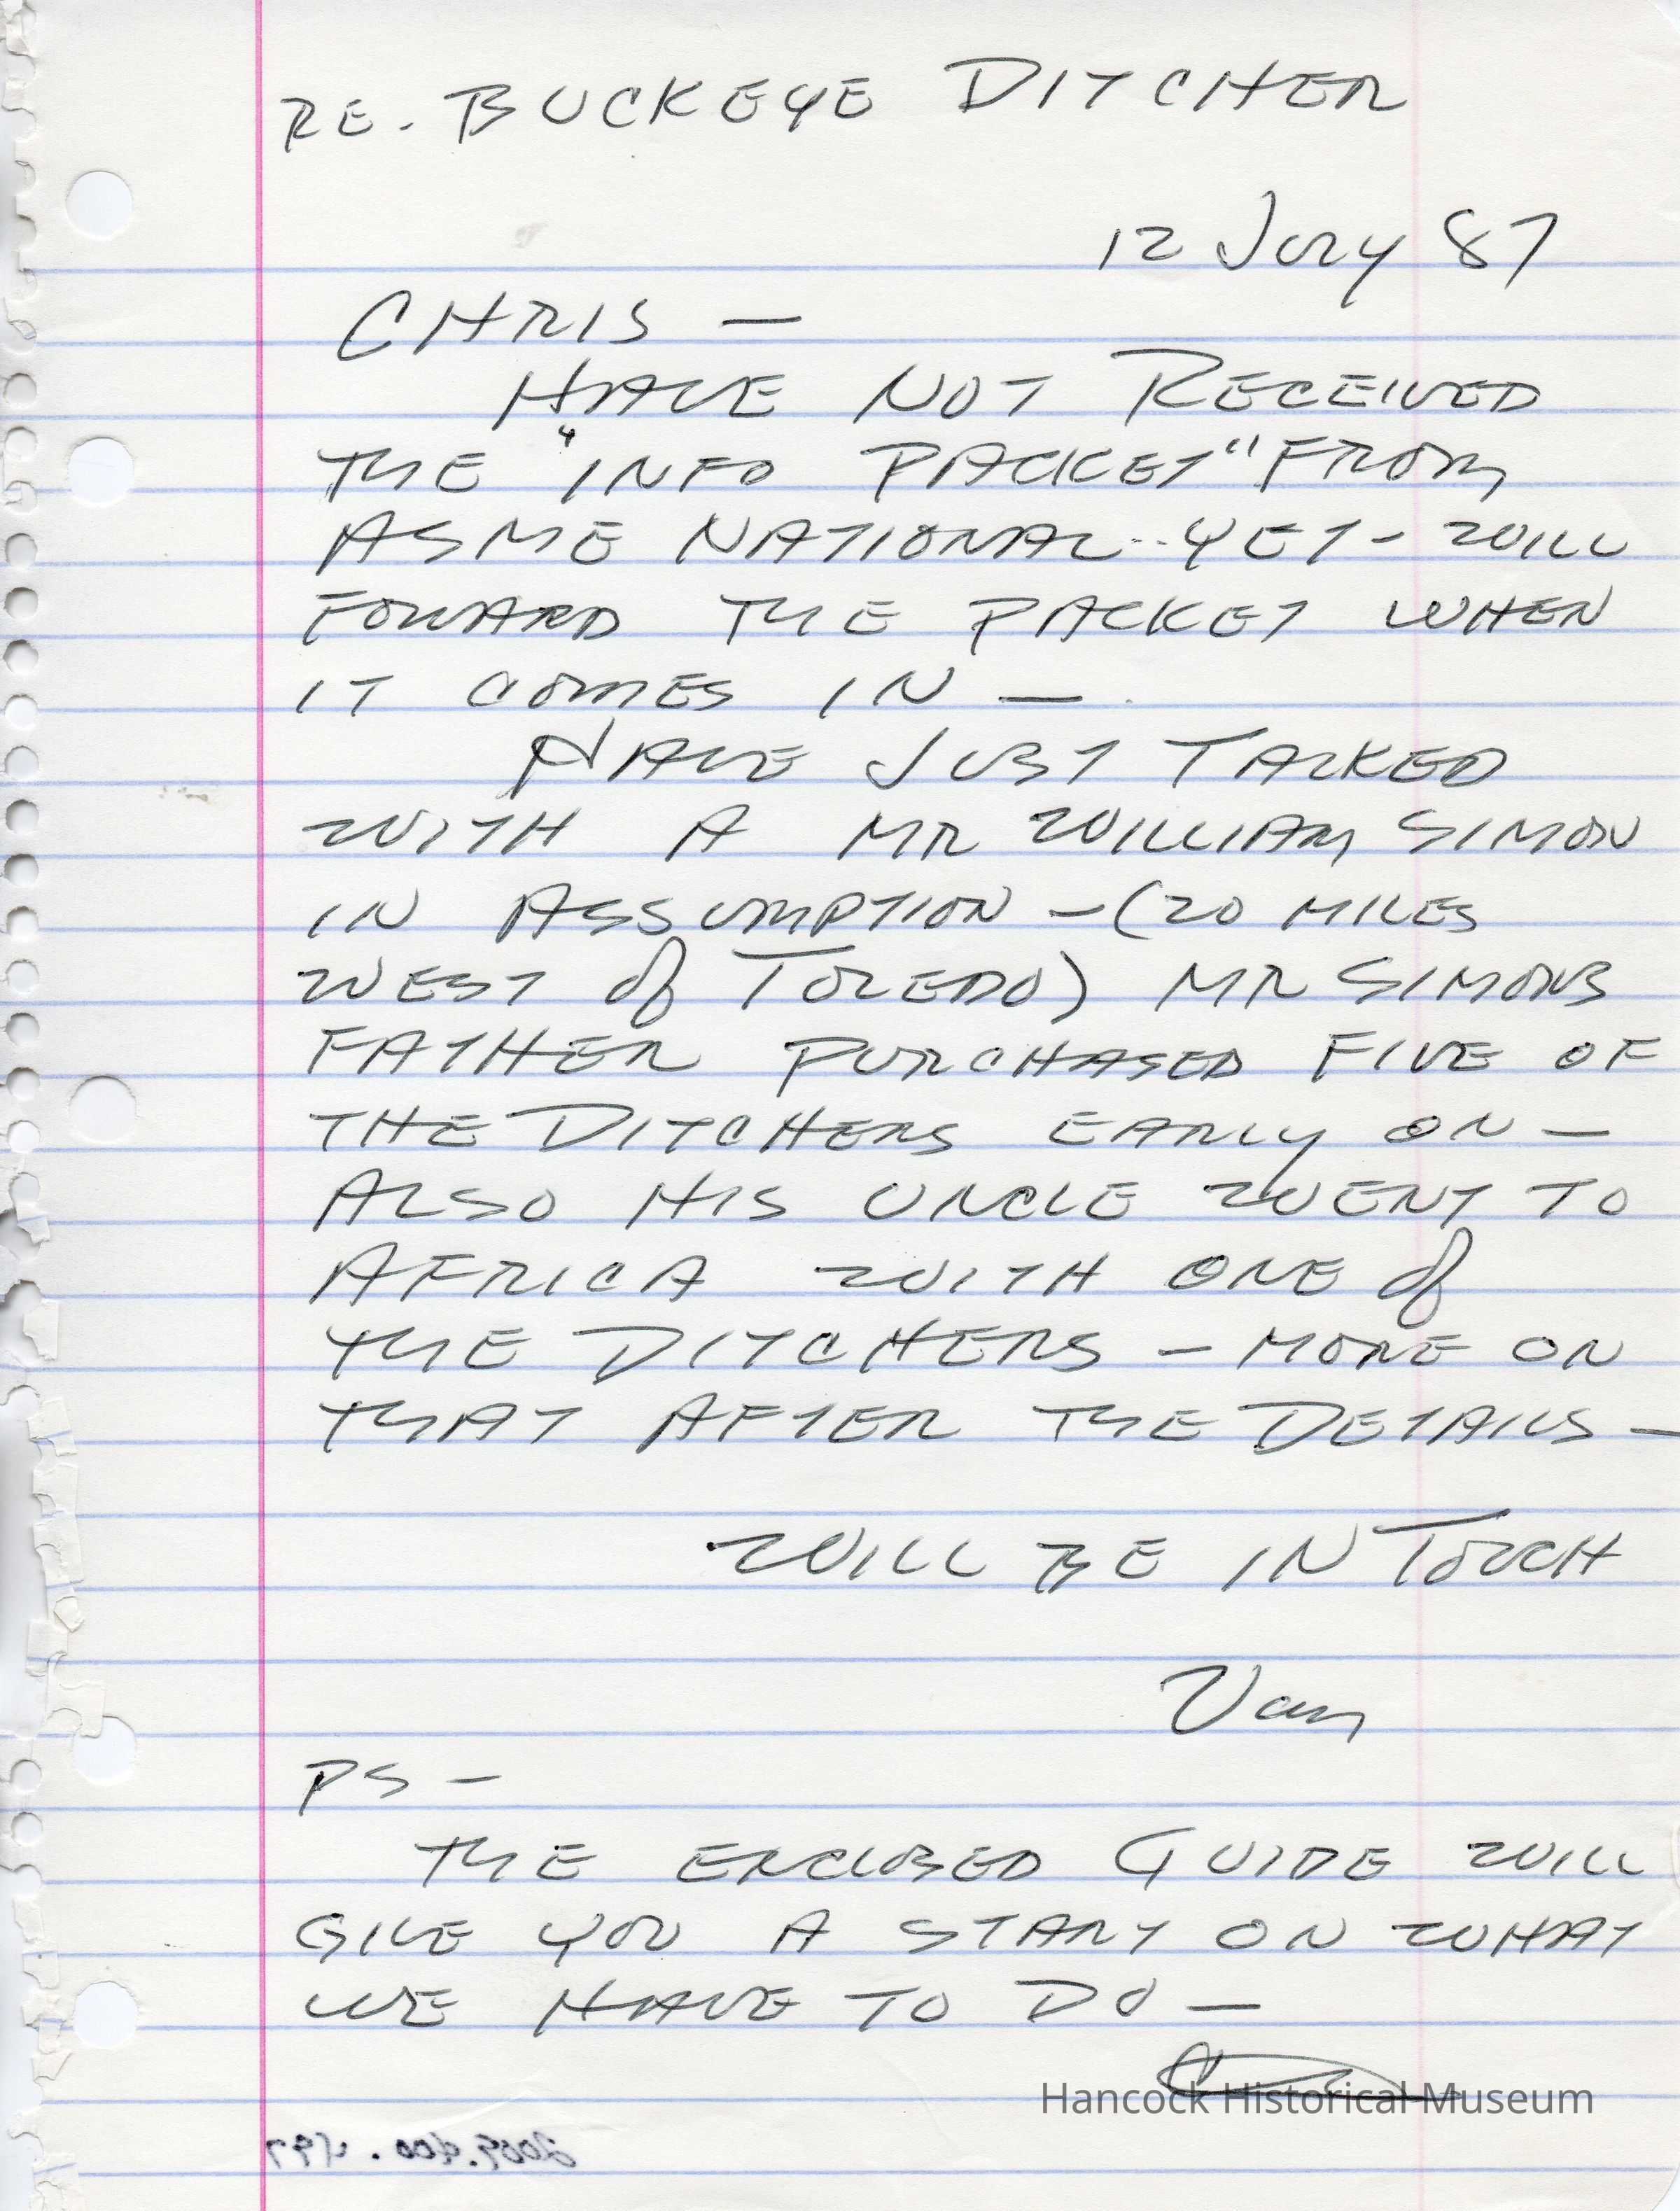 RE. BUCKEYE DITCHER
12 JULY 87
CHRIS —
HAVE NOT RECEIVED
THE "INFO PACKET" FROM
ASME NATIONAL YET - WILL
FOWARD THE PACKET WHEN
IT COMES IN —
HAVE JUST TALKED
WITH A MR WILLIAM SIMON
IN ASSUMPTION - (20 MILES
WEST of TOLEDO) MR SIMONS
FATHER PURCHASED FIVE OF
THE DITCHERS EARLY ON —
ALSO HIS UNCLE WENT TO
AFRICA WITH ONE of
THE DITCHERS - MORE ON
THAT AFTER THE DETAILS —
WILL BE IN TOUCH
Van
PS -
THE ENCLOSED GUIDE WILL
GIVE YOU A START ON WHAT
WE HAVE TO DO —
Hancock Historical Museum
2009.400.